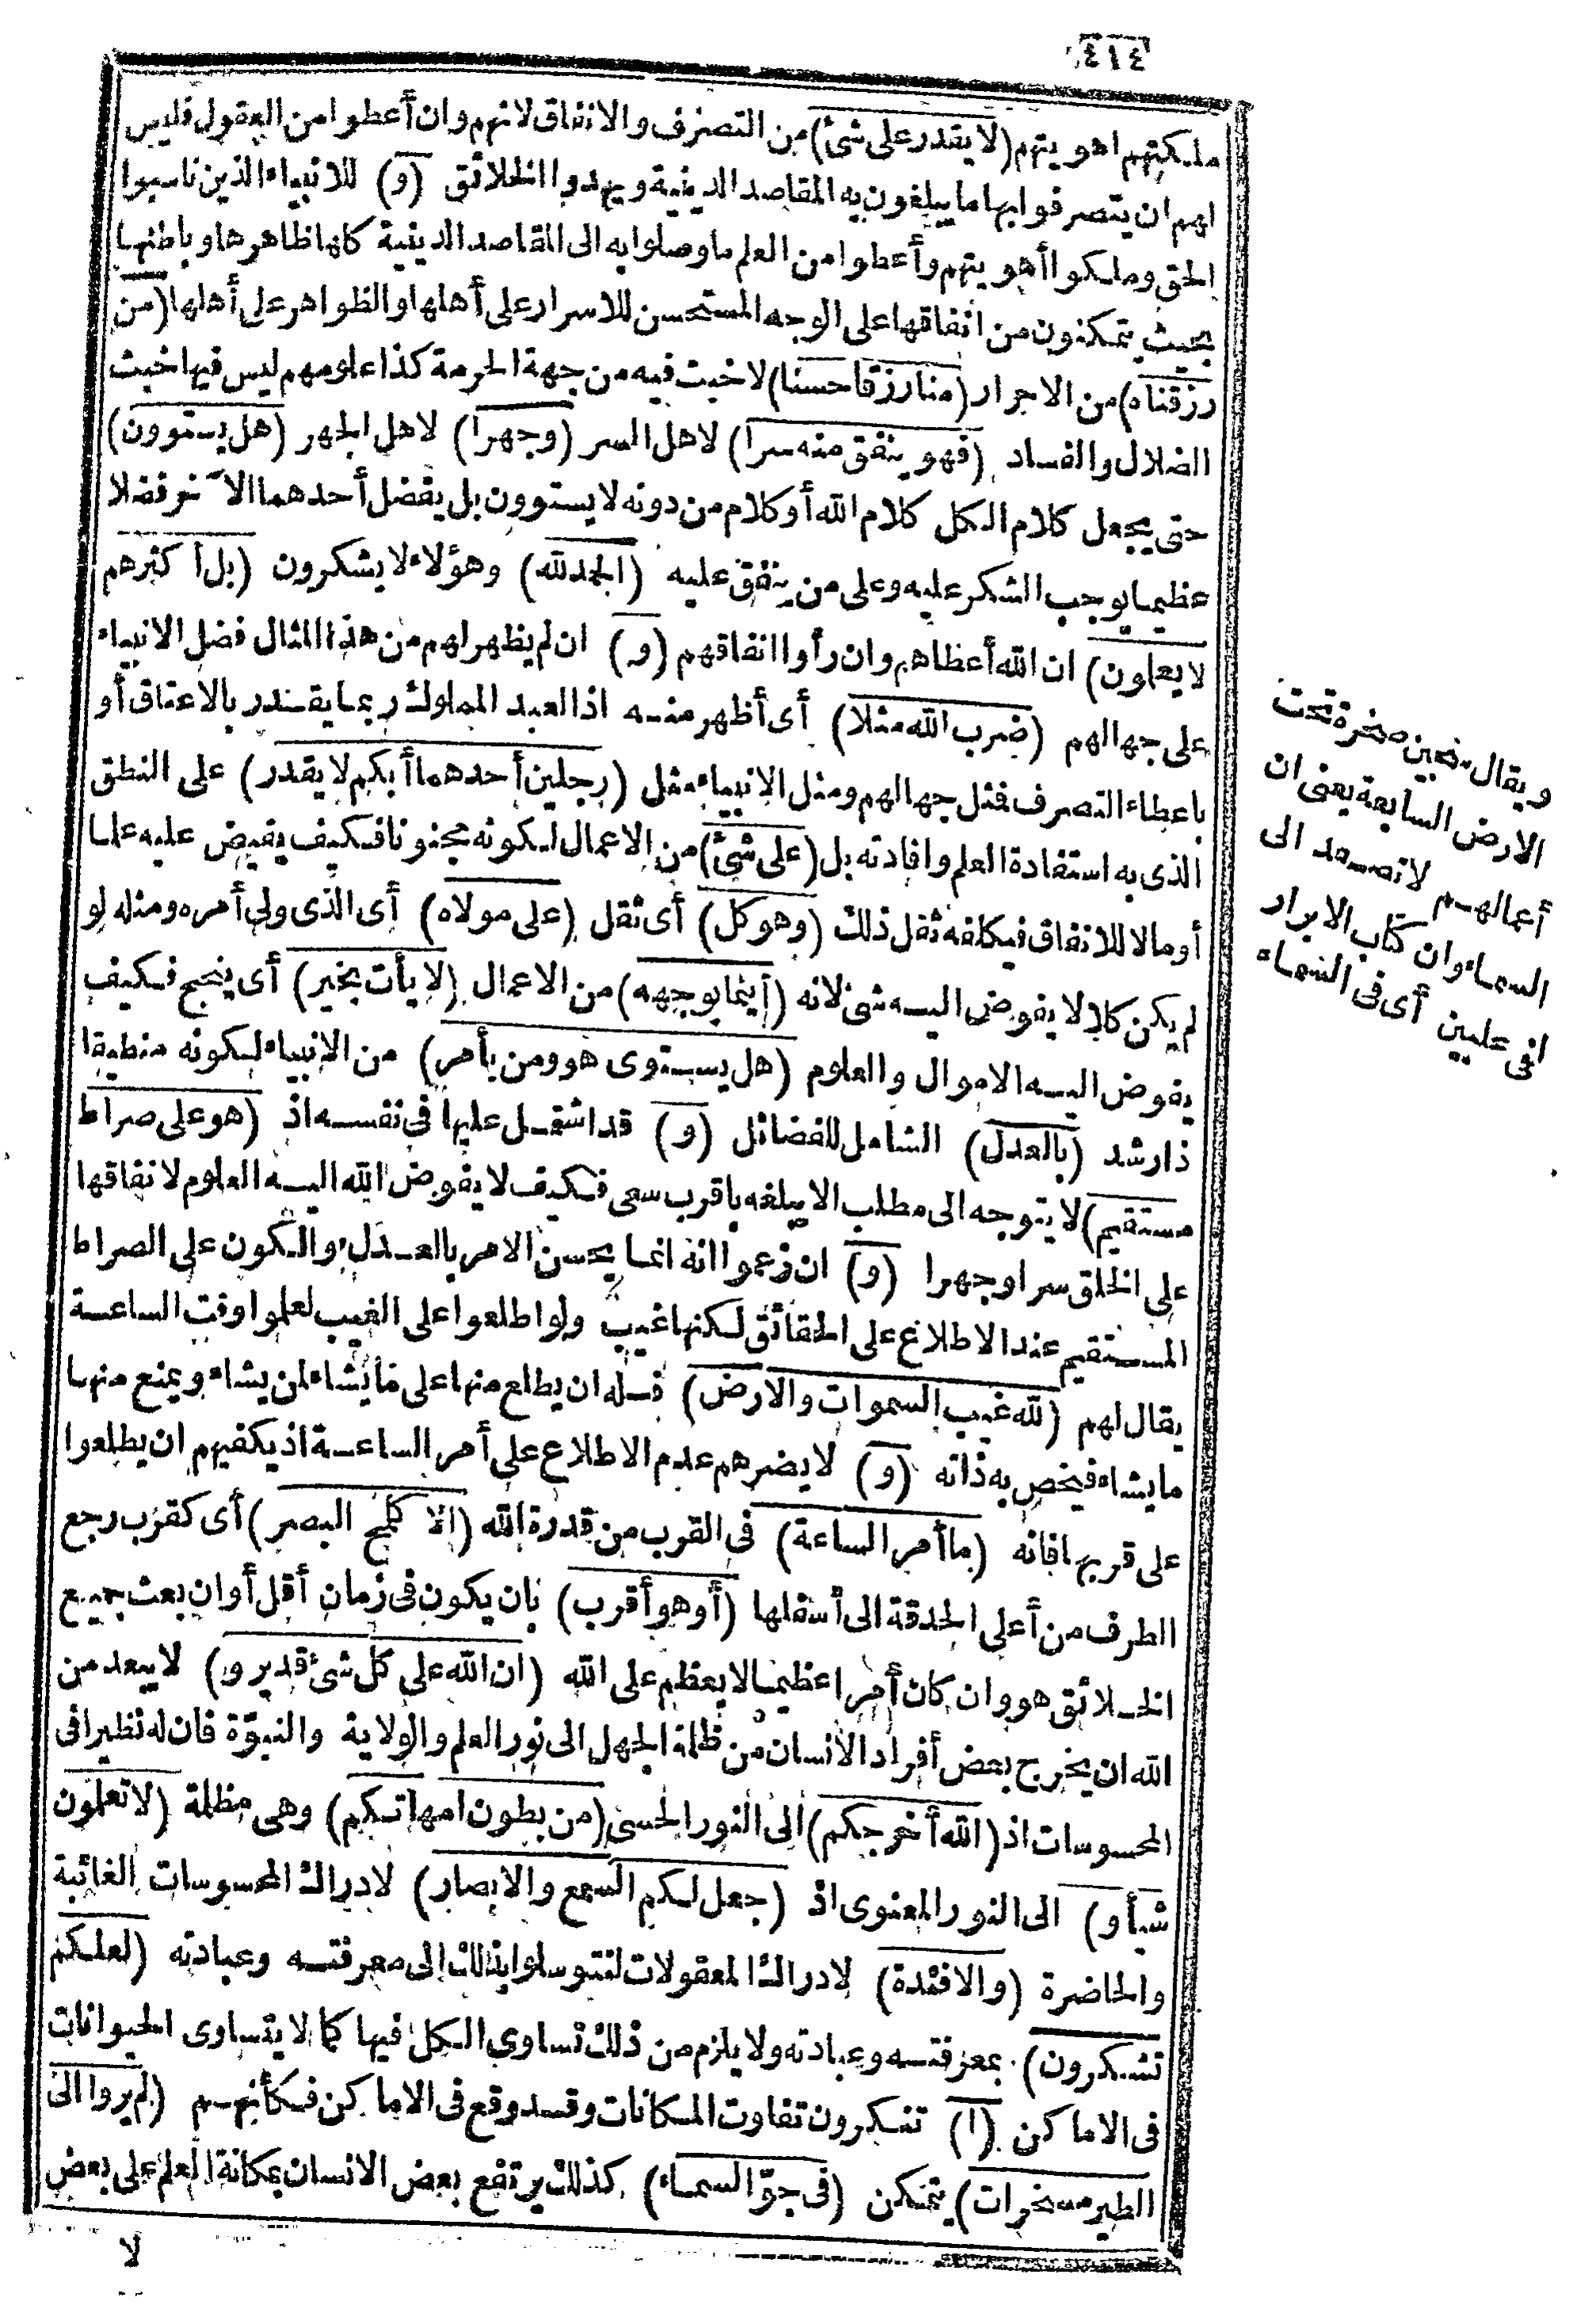 ٤١٤
ملكتهم اهويتهم (لا يقدر على شئ) من التصرف والانفاق لانهم وان أعطوا من العقول فليس
لهم ان يتصرفوا بها ما يبلغون به المقاصد الدينية ويهدوا الخلائق (و) للانبياء الذين ناسبوا
الحق وملكوا أهويتهم وأعطوا من العلم ما وصلوا به الى المقاصد الدينية كلها ظاهرها وباطنها
بحيث يتمكنون من انفاقها على الوجه المستحسن للاسرار على أهلها والظواهر على أهلها (من
رزقناه) من الاحرار (منا رزقا حسنا) لا خبث فيه من جهة الحرمة كذا علومهم ليس فيها خبث
الضلال والفساد (فهو ينفق منه سرا) لاهل السر (وجهرا) لاهل الجهر (هل يستوون)
حتى يجعل كلام الكل كلام الله أو كلام من دونه لا يستوون بل يفضل أحدهما الآخر فضلا
عظيما يوجب الشكر عليه وعلى من ينفق عليه (الحمد لله) وهؤلاء لا يشكرون (بل أكثرهم
لا يعلمون) ان الله أعطاهم وان رأوا انفاقهم (و) ان لم يظهر لهم من هذا المثال فضل الانبياء
على جهالهم (ضرب الله مثلا) أى أظهر منه اذ العبد المملوك ربما يقتدر بالاعتاق أو
باعطاء التصرف فمثل جهالهم ومثل الانبياء مثل (رجلين أحدهما أبكم لا يقدر) على النطق
الذى به استفادة العلم وافادته بل (على شئ) من الاعمال لكونه مجنونا فكيف يفيض عليه علما
أو مالا للانفاق فيكلفه ثقل ذلك (وهو كل) أى ثقل (على مولاه) أى الذى ولى أمره ومثله لو
لم يكن كلا لا يفوض اليه شئ لانه (أينما يوجهه) من الاعمال (لا يأت بخير) أى ينجح فكيف
يفوض اليه الاموال والعلوم (هل يستوى هو ومن يأمر) من الانبياء لكونه منطيقا
ذا رشد (بالعدل) الشامل للفضائل (و) قد اشتمل عليها فى نفسه اذ (هو على صراط
مستقيم) لا يتوجه الى مطلب الا يبلغه باقرب سعى فكيف لا يفوض الله اليه العلوم لانفاقها
على الخلق سرا وجهرا (و) ان زعموا انه انما يحسن الامر بالعدل والكون على الصراط
المستقيم عند الاطلاع على الحقائق لكنها غيب ولو اطلعوا على الغيب لعلموا وقت الساعة
يقال لهم (لله غيب السموات والارض) فله ان يطلع منها على ما يشاء لمن يشاء ويمنع منها
ما يشاء فيخص به ذاته (و) لا يضرهم عدم الاطلاع على أمر الساعة اذ يكفيهم ان يطلعوا
على قربها فانه (ما أمر الساعة) فى القرب من قدرة الله (الا كلمح البصر) أى كقرب رجع
الطرف من أعلى الحدقة الى أسفلها (أو هو أقرب) بان يكون فى زمان أقل أو ان بعث جميع
الخلائق هو وان كان أمرا عظيما لا يعظم على الله (ان الله على كل شئ قدير و) لا يبعد من
الله ان يخرج بعض أفراد الانسان من ظلمة الجهل الى نور العلم والولاية والنبوّة فان له نظيرا فى
المحسوسات اذ (الله أخرجكم) الى النور الحسى (من بطون امهاتكم) وهى مظلمة (لا تعلمون
شيأ و) الى النور المعنوى اذ (جعل لكم السمع والابصار) لادراك المحسوسات الغائبة
والحاضرة (والافئدة) لادراك المعقولات لتتوسلوا بذلك الى معرفته وعبادته (لعلكم
تشكرون) بمعرفته وعبادته ولا يلزم من ذلك تساوى الكل فيها كما لا يتساوى الحيوانات
فى الاماكن (ا) تنكرون تفاوت المكانات وقد وقع فى الاماكن فكأنهم (لم يروا الى
الطير مسخرات) يتمكن (فى جوّ السماء) كذلك يرتفع بعض الانسان بمكانة العلم على بعض
لا
ويقال سجين صخرة تحت
الارض السابعة يعنى ان
أعمالهم لا تصعد الى
السماء وان كتاب الابرار
لفى عليين أى فى السماء